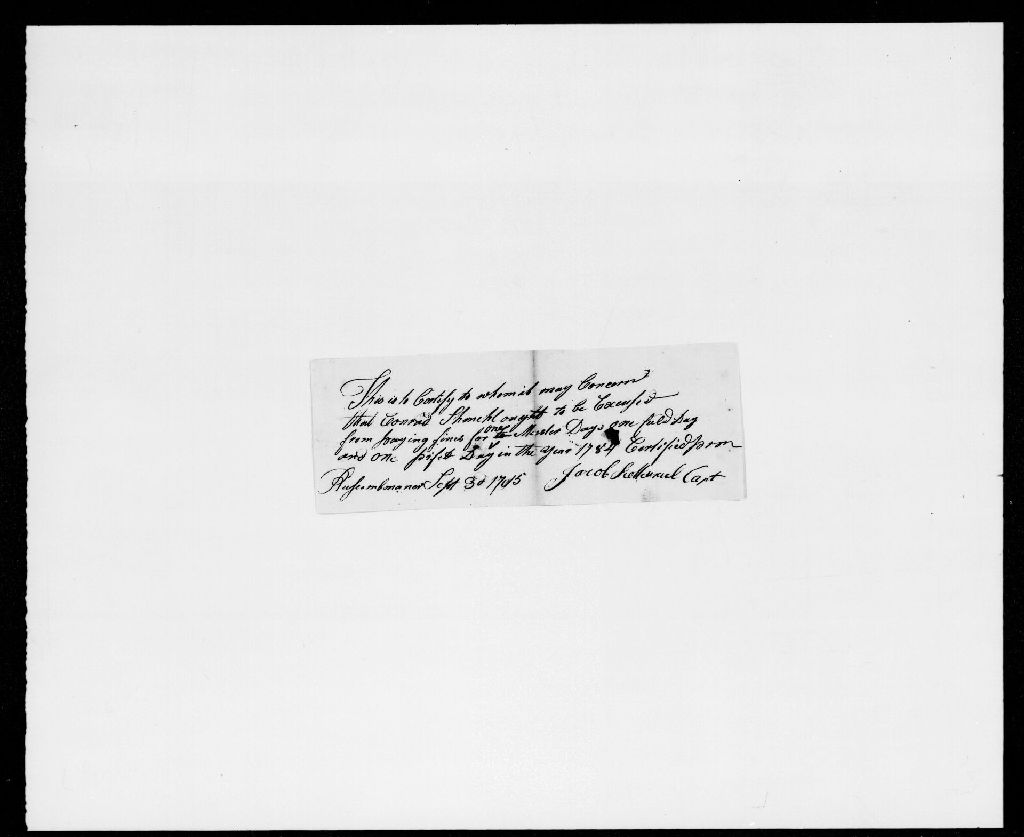 This is to Certify to whom it may Concern
that Conrad Shanckl ought to be Excused
from paying fines for one Muster Days one field Day
and one first Day in the year 1784 Certified from
Ruscombmanor Sept 3d 1785 Jacob Capt